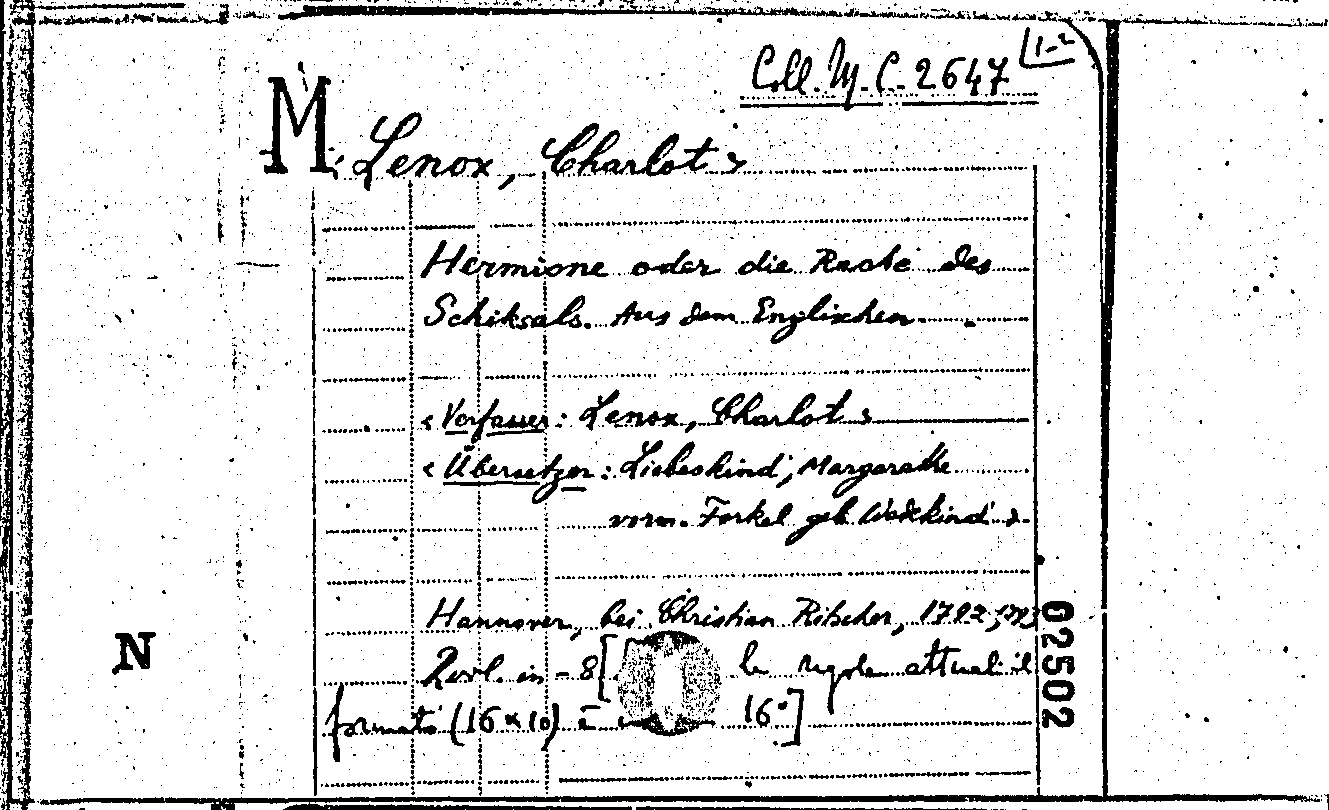 Coll. M. C. 2647 1-2
M
‹ Lenox, Charlot ›
Hermione oder die Rache des
Schiksals. Aus dem Englischen.
‹ Verfasser: Lenox, Charlot ›
‹ Übersetzer: Liebeskind, Margarethe
vorm. Forkel geb. Wedekind ›.
Hannover, bei Christian Ritscher, 1792, 1793
2 vol. in-8 [ le regole attuali il
formato (16x10) è 16°]
N
02502